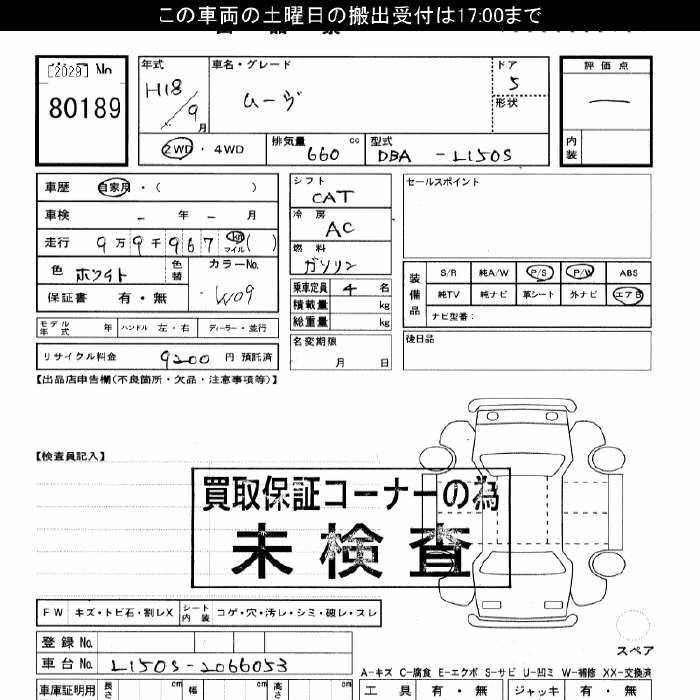 この車両の土曜日の搬出受付は17:00まで
[2029] No
80189
年式
H18/9月
車名・グレード
ムーヴ
ドア
5
形状
評価点
内装
2WD・4WD
排気量 660 cc
型式 DBA - L150S
車歴 自家用・( )
車検 - 年 - 月
走行 9万9千967 km マイル ( )
色 ホワイト
色替
カラーNo.
W09
保証書 有・無
モデル年式 年 ハンドル 左・右 ディーラー・並行
リサイクル料金 9200 円 預託済
シフト
CAT
冷房
AC
燃料
ガソリン
乗車定員 4 名
積載量 kg
総重量 kg
名変期限
月 日
セールスポイント
装備品
S/R 純A/W P/S P/W ABS
純TV 純ナビ 革シート 外ナビ エアB
ナビ型番:
後日品
【出品店申告欄(不良箇所・欠品・注意事項等)】
【検査員記入】
買取保証コーナーの為
未検査
FW キズ・トビ石・割レX シート内装 コゲ・穴・汚レ・シミ・破レ・スレ
スペア
登録 No.
車台 No. L150S-2066053
A-キズ C-腐食 E-エクボ S-サビ U-凹ミ W-補修 XX-交換済
車庫証明用 長さ cm 幅 cm 高さ cm
工具 有・無 ジャッキ 有・無